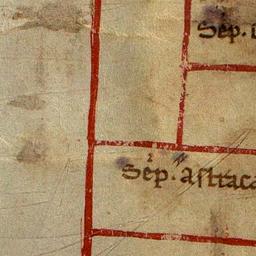 Sep. i
Sep. astraca